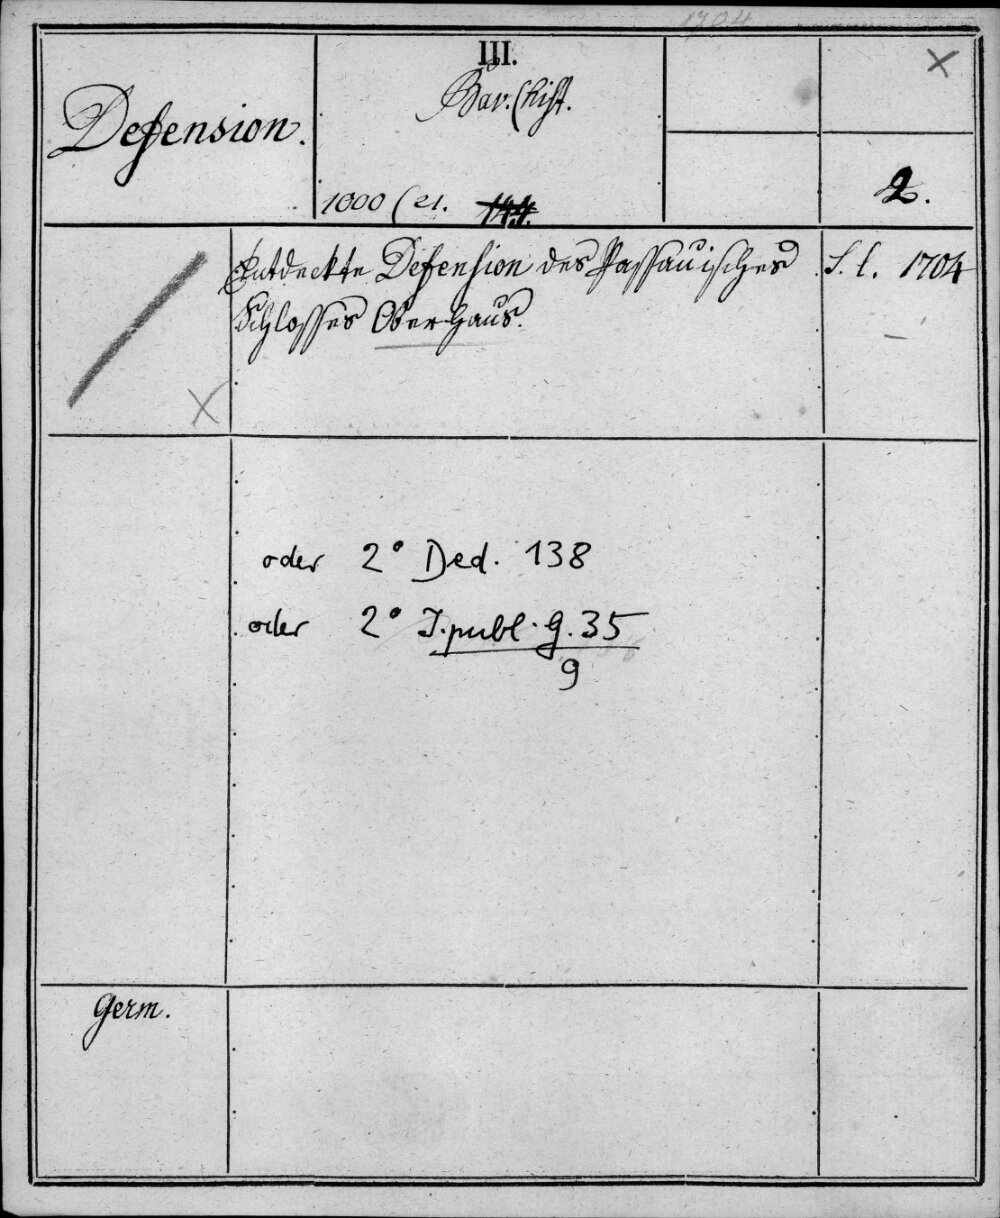 1704
III.
Bav. hist.
Defension.
1000 (21.
2.
Entdeckte Defension des Passauisches
Schlosses Oberhaus.
S. l. 1704
oder 2° Ded. 138
oder 2° J. publ. g. 35
9
Germ.